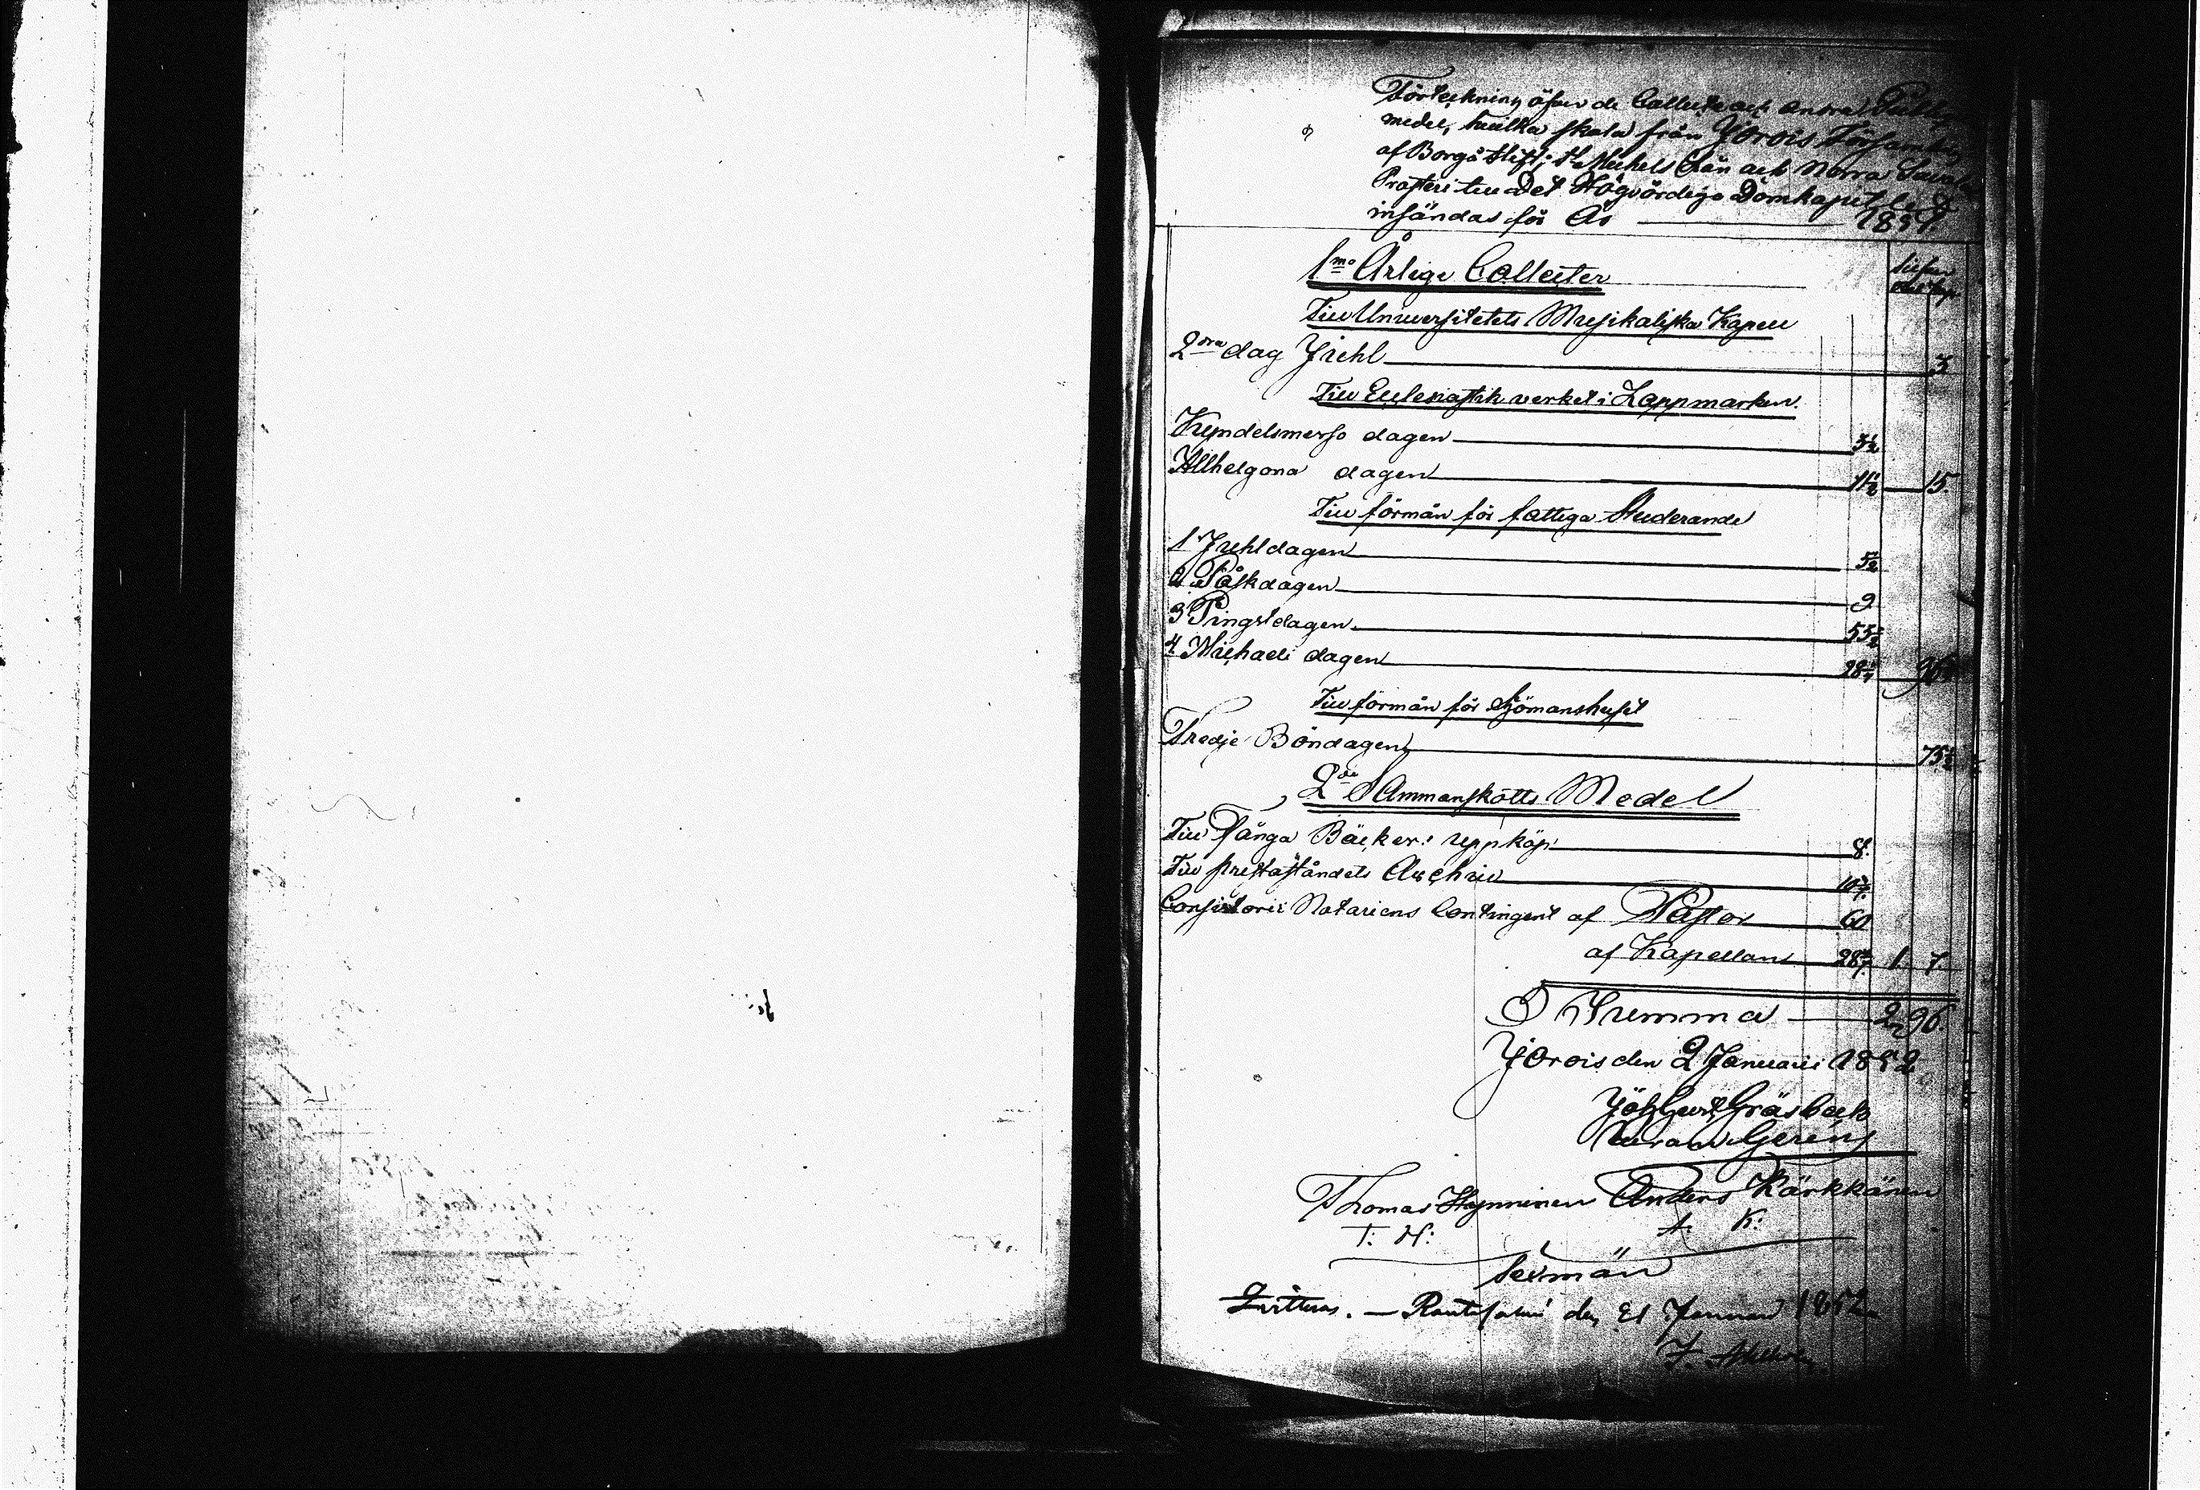 Förteckning öfver de Collecte och andra
medel, hvilka skola från Jorois Församling
af Borgå Stift, S:t Michels Län och Norra Savolax
Prosteri till Det Högvördiga Domkapitlet
insändas för År 1851.
Silfver
Rub. kop.
1mo Årliga Collecter
Till Universitetets Musikaliska Kapell
2dra dag Juhl 3
Till Ecclesiastik verket i Lappmarken.
Kyndelsmesso dagen 3½
Allhelgona dagen 11½ 15.
Till förmån för fattiga Studerande
1 Juhldagen
2 Påskdagen 9
3 Pingstdagen.
4 Michaeli dagen
Till förmån för Sjömanshuset
Tredje Böndagen 75½
2do Sammanskotts Medel
Till Fånga Böckers uppköp 8.
Till prestaståndets Archiv
Consistorii Notariens Contingent af Pastor 60
af Kapellan 1. 7.
Summa 2, 96
Jorois den 2 Januarii 1852
Gråsbäck
Thomas Hynninen Anders Kärkkänen
T: H: A: K:
Sexmän
Qvitteras. — Rantasalmi den 21 Januari 1852